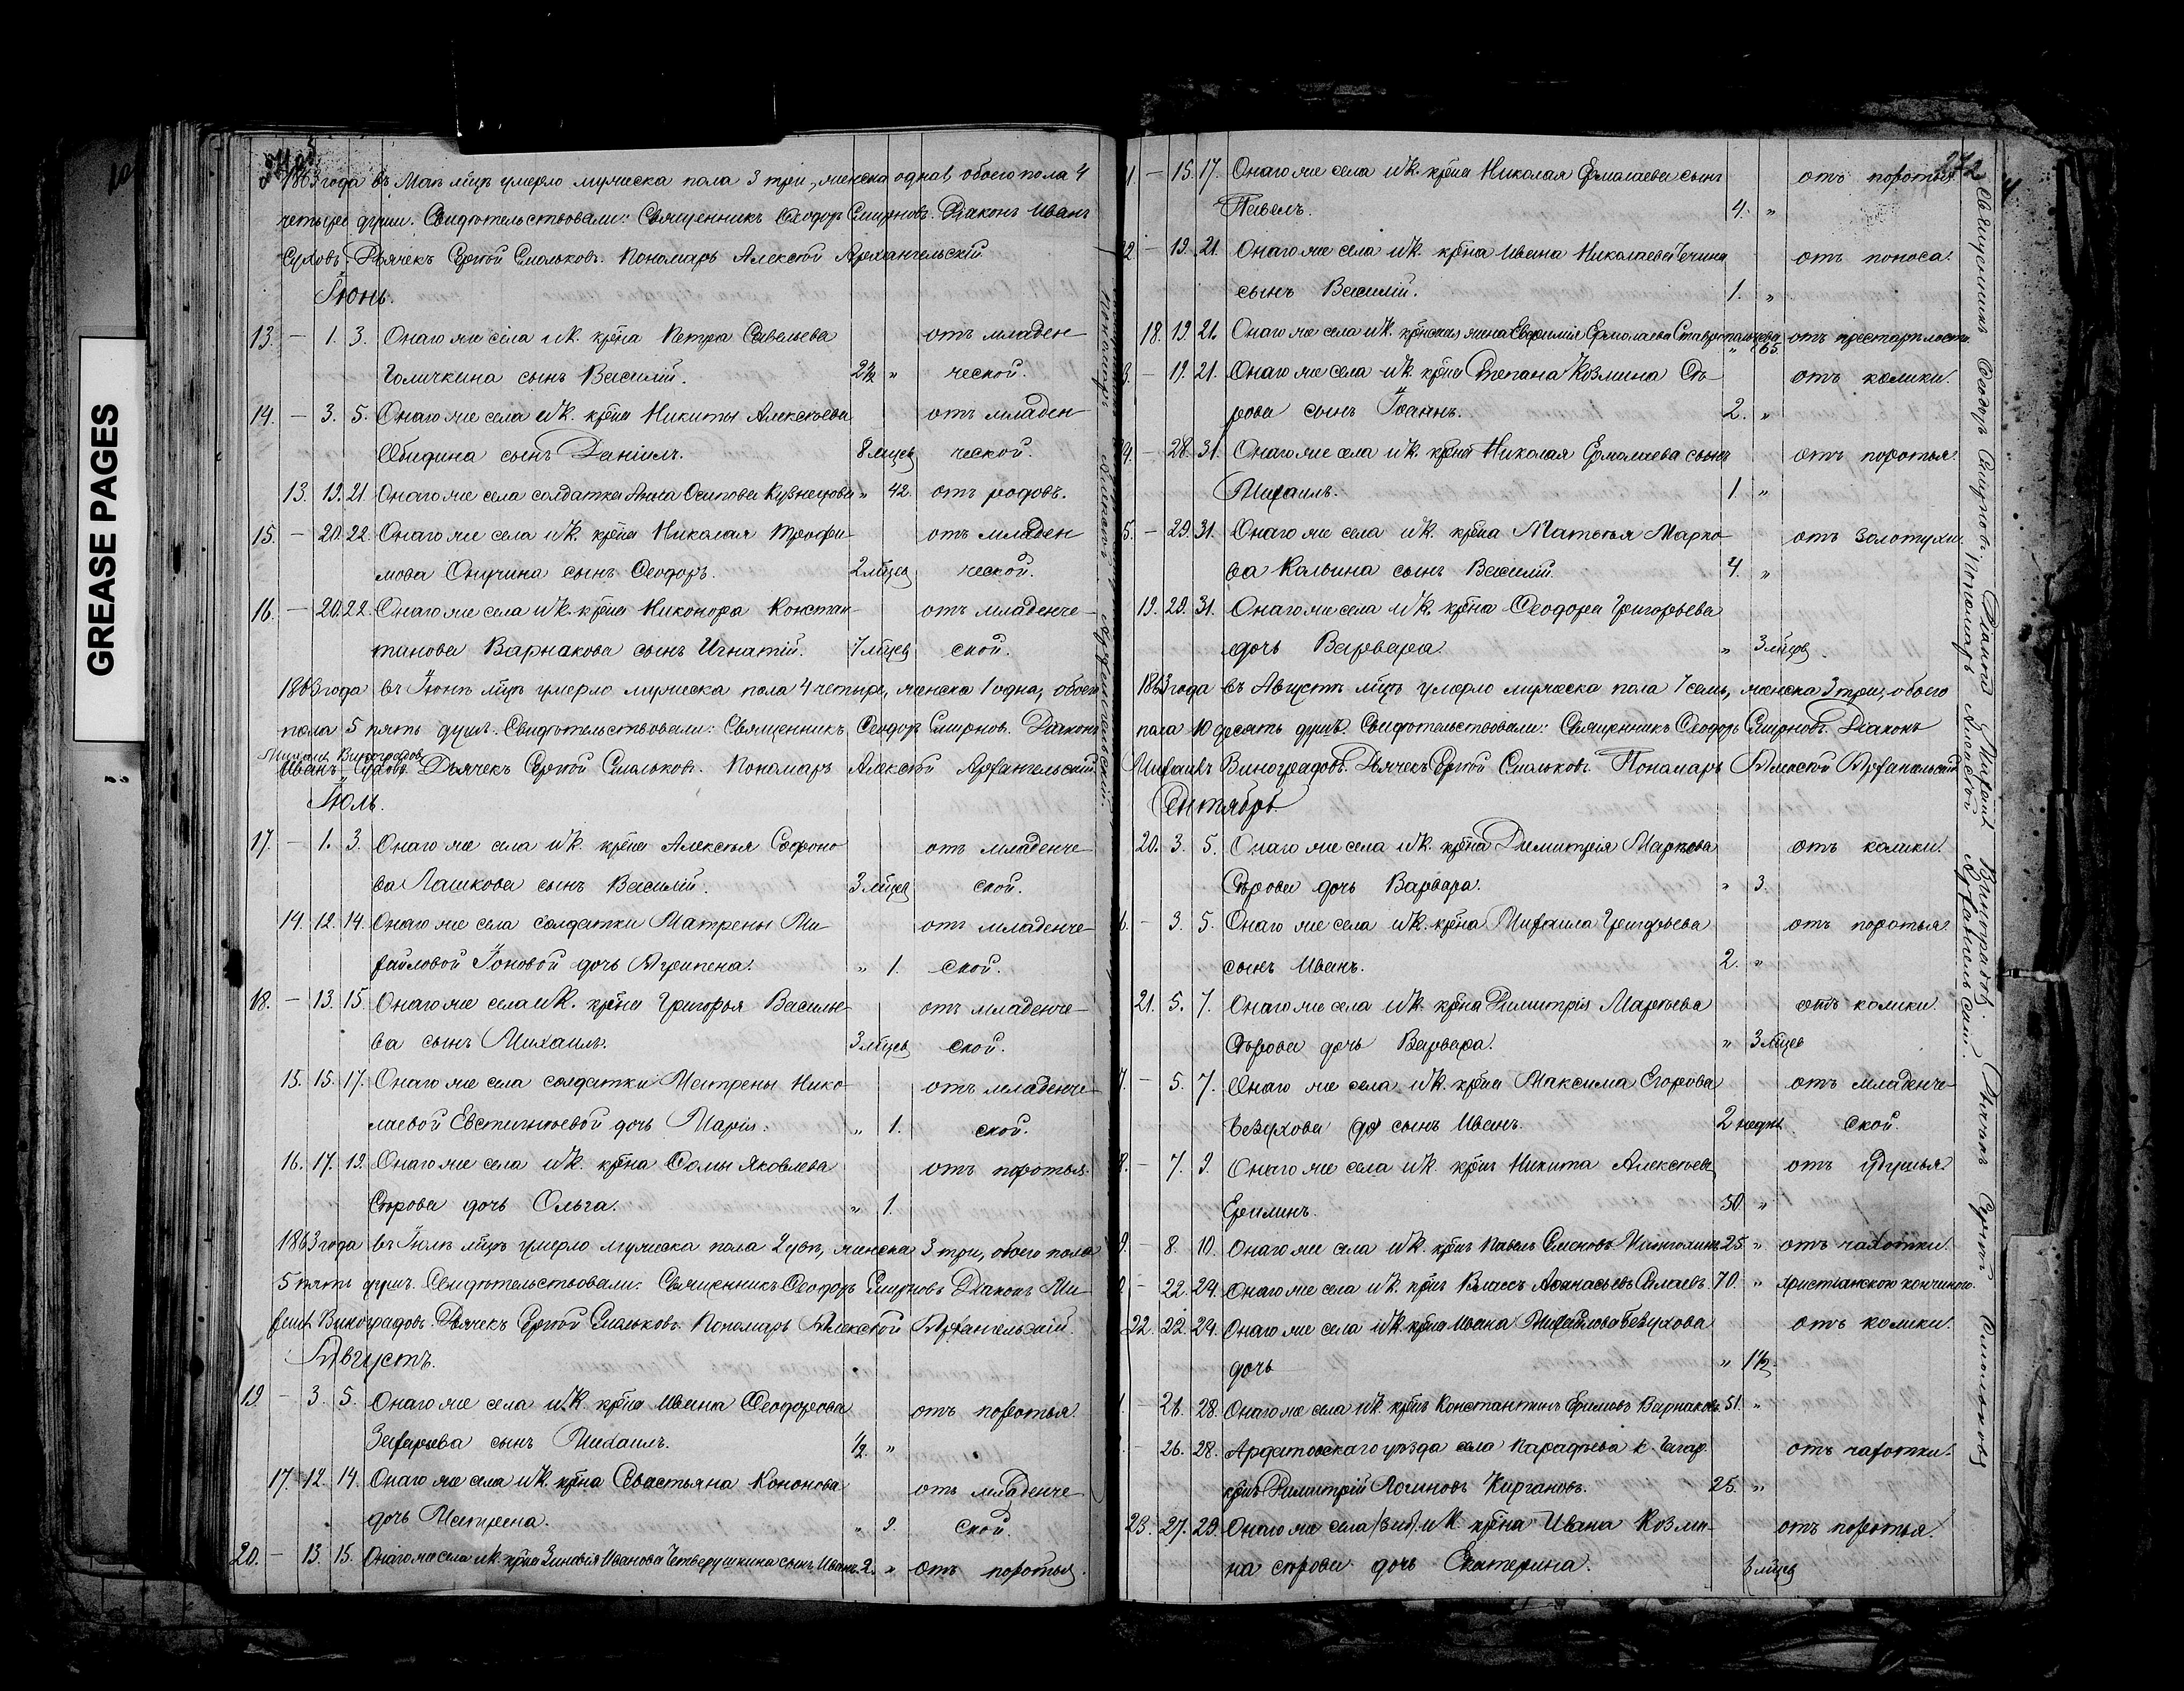 GREASE PAGES
1863 года въ Маѣ мцѣ умерло мужеска пола 3 три, женска одна 1 обоего пола 4
четыре души. Свидѣтельствовали: Священникъ Ѳеодоръ Смирновъ. Діаконъ Иванъ
Суховъ. Дьячекъ Сергѣй Смольковъ. Пономарь Алексѣй Архангельскій
Іюнь.
13. — 1. 3. Онаго же села крѣна Петра Савельева отъ младен-
Голичкина сынъ Василій. 2½ " ческой.
14. — 3. 5. Онаго же села крѣна Никиты Алексѣева отъ младен-
Обидина сынъ Даніилъ. 8 мцев ческой.
13. 19. 21. Онаго же села солдатка Анна Осипова Кузнецова " 42. отъ родовъ.
15. — 20. 22. Онаго же села крѣна Николая Трофи- отъ младен
мова сынъ Ѳеодоръ. 2 мцев ческой.
16. — 20. 22. Онаго же села крѣна Никонора Констан- отъ младенче-
тинова Варнакова сынъ Игнатій. 7 мцев ской.
1863 года въ Іюнѣ мцѣ умерло мужеска пола 4 четыре, женска 1 одна, обоего
пола 5 пять душъ. Свидѣтельствовали: Священникъ Ѳеодоръ Смирнов. Діаконъ
Михаилъ Виноградовъ
Иванъ Суховъ. Дьячекъ Сергѣй Смольковъ. Пономарь Алексѣй Архангельскій.
Іюль.
17. — 1. 3. Онаго же села крѣна Алексѣя Софроно- отъ младенче-
ва Лашкова сынъ Василій. 3 мцев ской.
14. 12. 14. Онаго же села солдатки Матрены Ми- отъ младенче-
хайловой Іоновой дочь Агрипена. " 1. ской.
18. — 13. 15. Онаго же села крѣна Григорья Василье- отъ младенче-
ва сынъ Михаилъ. 3 мцев ской.
15. 15. 17. Онаго же села солдатки Матрены Нико- отъ младенче-
лаевой Евстигнѣевой дочь Марія. " 1. ской.
16. 17. 19. Онаго же села крѣна Ѳомы Яковлева отъ поротья.
Сѣрова дочь Ольга. " 1.
1863 года въ Іюлѣ мцѣ умерло мужеска пола 2 два, женска 3 три, обоего пола
5 пять душъ. Свидѣтельствовали: Священникъ Ѳеодоръ Смирновъ Діаконъ Ми-
хаилъ Виноградовъ. Дьячекъ Сергѣй Смольковъ. Пономарь Алексѣй Архангельскій.
Августъ.
19 — 3. 5. Онаго же села крѣна Ивана Ѳеодорова отъ поротья.
Захарьева сынъ Михаилъ. ½ "
17. 12. 14. Онаго же села крѣна Севастьяна Кононова отъ младенче-
дочь Матрена. " 9. ской.
20. — 13. 15. Онаго же села крѣна Зиновія Иванова Четверушкина сынъ Иванъ. 2. " отъ поротья.
272
— 15. 17. Онаго же села крѣна Николая Ермолаева сынъ отъ поротья
Павелъ. 4. "
— 19. 21. Онаго же села крѣна Ивана Николаева отъ поноса.
сынъ Василій. 1. "
18. 19. 21. Онаго же села крѣнская жена Евфимія Ермолаева отъ престарѣлости.
" 65.
— 19. 21. Онаго же села крѣна Степана Козмина Сѣ- отъ колики.
рова сынъ Іоаннъ. 2. "
— 28. 31. Онаго же села крѣна Николая Ермолаева сынъ отъ поротья
Михаилъ. 1. "
— 29. 31. Онаго же села крѣна Матвѣя Марко- отъ золотухи.
ва Кальина сынъ Василій. 4. "
19. 29. 31. Онаго же села крѣна Ѳеодора Григорьева
дочь Варвара " 3 мцев.
1863 года въ Августѣ мцѣ умерло мужеска пола 7 семь, женска 3 три, обоего
пола 10 десять душъ. Свидѣтельствовали: Священникъ Ѳеодоръ Смирновъ. Діаконъ
Михаилъ Виноградовъ. Дьячекъ Сергѣй Смольковъ. Пономарь Алексѣй Архангельскій
Сентябрь.
20. 3. 5. Онаго же села крѣна Димитрія Маркова отъ колики.
Сѣрова дочь Варвара. " 3.
— 3. 5. Онаго же села крѣна Михаила Григорьева отъ поротья.
сынъ Иванъ. 2. "
21. 5. 7. Онаго же села крѣна Димитрія Маркова отъ колики.
Сѣрова дочь Варвара. " 3 мцев
— 5. 7. Онаго же села крѣна Максима Егорова отъ младенче-
Безухова сынъ Иванъ. 2 недѣл ской.
— 7. 9. Онаго же села Никита Алексѣевъ отъ удушья
Ерилинъ. 50. "
— 8. 10. Онаго же села Павелъ Семеновъ 25. " отъ чахотки.
— 22. 24. Онаго же села Власъ Афанасьевъ 70. " христіанскою кончиною.
22. 22. 24. Онаго же села крѣна Ивана Михайлова Безухова отъ колики.
дочь " 1½.
— 26. 28. Онаго же села Константинъ Ефимовъ Варнаковъ. 51. "
— 26. 28. Ардатовскаго уѣзда села отъ чахотки.
Димитрій Киргановъ. 25. "
23. 27. 29. Онаго же села крѣна Ивана Козми- отъ поротья
на Сѣрова дочь Екатерина. 6 мцев
Священникъ Ѳеодоръ Смирновъ. Діаконъ Михаилъ Виноградовъ. Дьячекъ Сергѣй Смольковъ
Пономарь Алексѣй Архангельскій.
Пономарь Алексѣй Архангельскій.